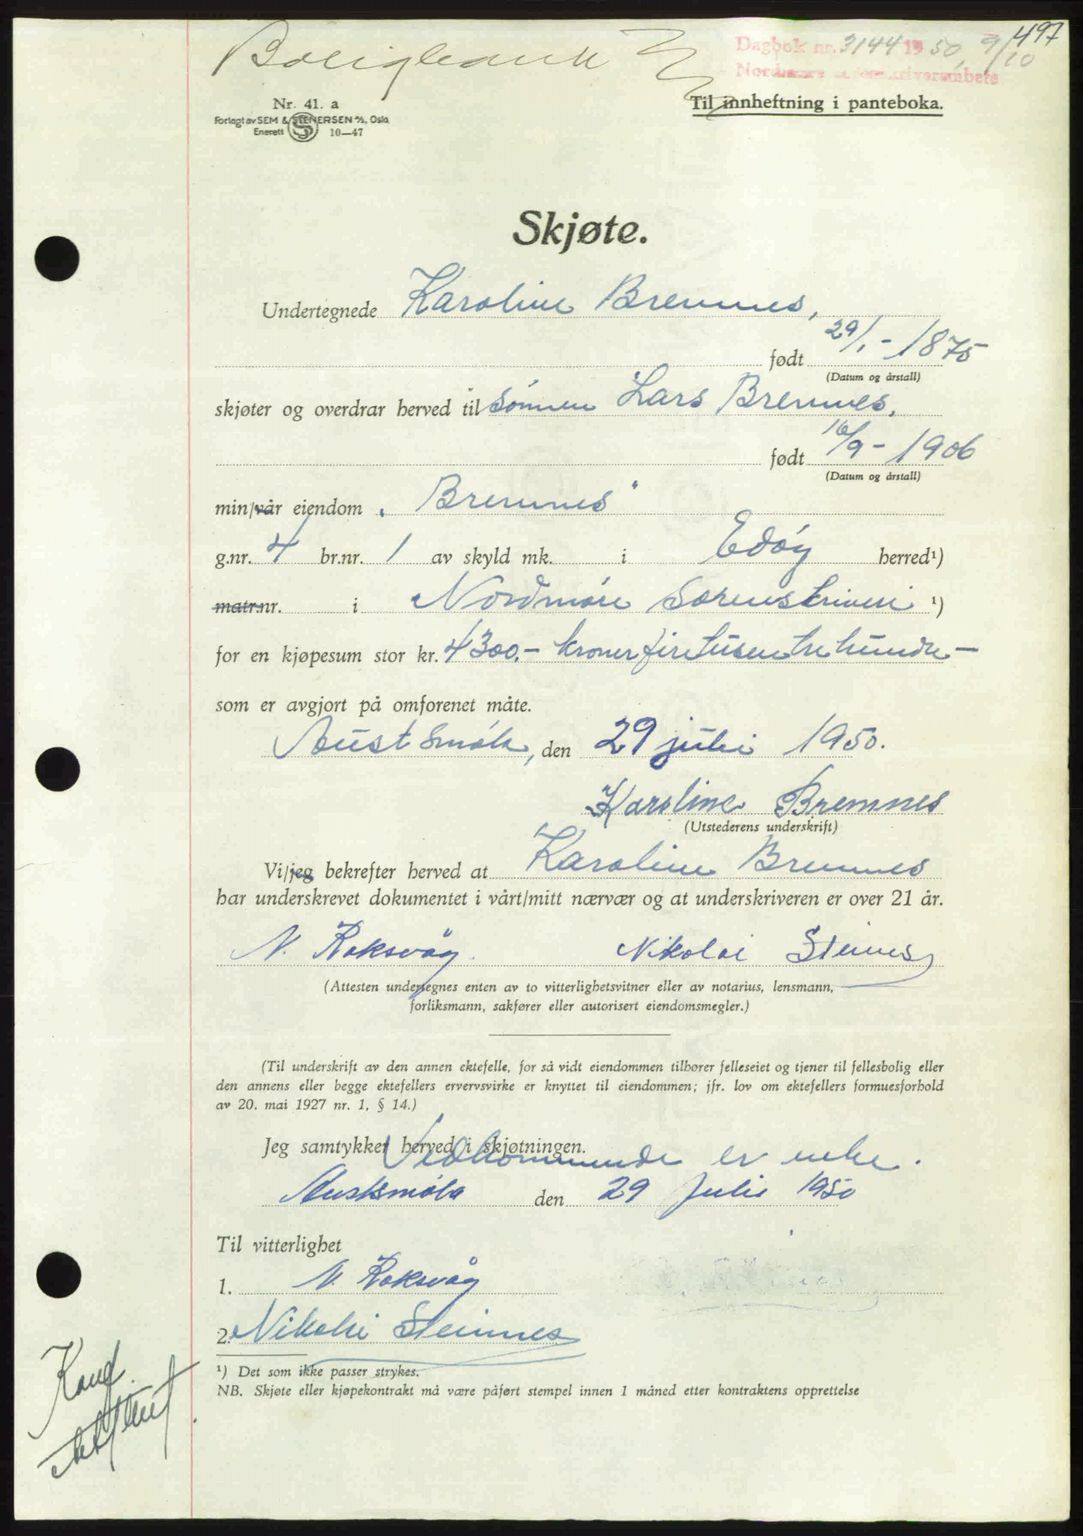 497
Boligbank
Dagbok nr. 3144 1950, 9/10
Nordmøre sorenskriverembete
Nr. 41. a
Til innheftning i panteboka.
Forlagt av SEM & STENERSEN A/S, Oslo
Enerett 10—47
Skjøte.
Undertegnede Karoline Bremnes,
født 29/1 - 1875
(Datum og årstall)
skjøter og overdrar herved til sønnen Lars Bremnes,
født 16/9 - 1906
(Datum og årstall)
min/vår eiendom „Bremnes"
g.nr. 4 br.nr. 1 av skyld mk. i Edøy herred¹)
matr.nr. i Nordmøre Sorenskriveri ¹)
for en kjøpesum stor kr. 4300,- kroner firetusentrehundre—
som er avgjort på omforenet måte.
Aust Smøla, den 29 juli 1950.
Karoline Bremnes
(Utstederens underskrift)
Vi/jeg bekrefter herved at Karoline Bremnes
har underskrevet dokumentet i vårt/mitt nærvær og at underskriveren er over 21 år.
N. Roksvåg. Nikolai Steinnes
(Attesten undertegnes enten av to vitterlighetsvitner eller av notarius, lensmann,
forliksmann, sakfører eller autorisert eiendomsmegler.)
(Til underskrift av den annen ektefelle, for så vidt eiendommen tilhører felleseiet og tjener til fellesbolig eller
den annens eller begge ektefellers ervervsvirke er knyttet til eiendommen; jfr. lov om ektefellers formuesforhold
av 20. mai 1927 nr. 1, § 14.)
Jeg samtykker herved i skjøtningen.
Vedkommende er enke.
Austsmøla den 29 Juli 1950
Til vitterlighet
1. N. Roksvåg
2. Nikolai Steinnes
¹) Det som ikke passer strykes.
NB. Skjøte eller kjøpekontrakt må være påført stempel innen 1 måned etter kontraktens opprettelse